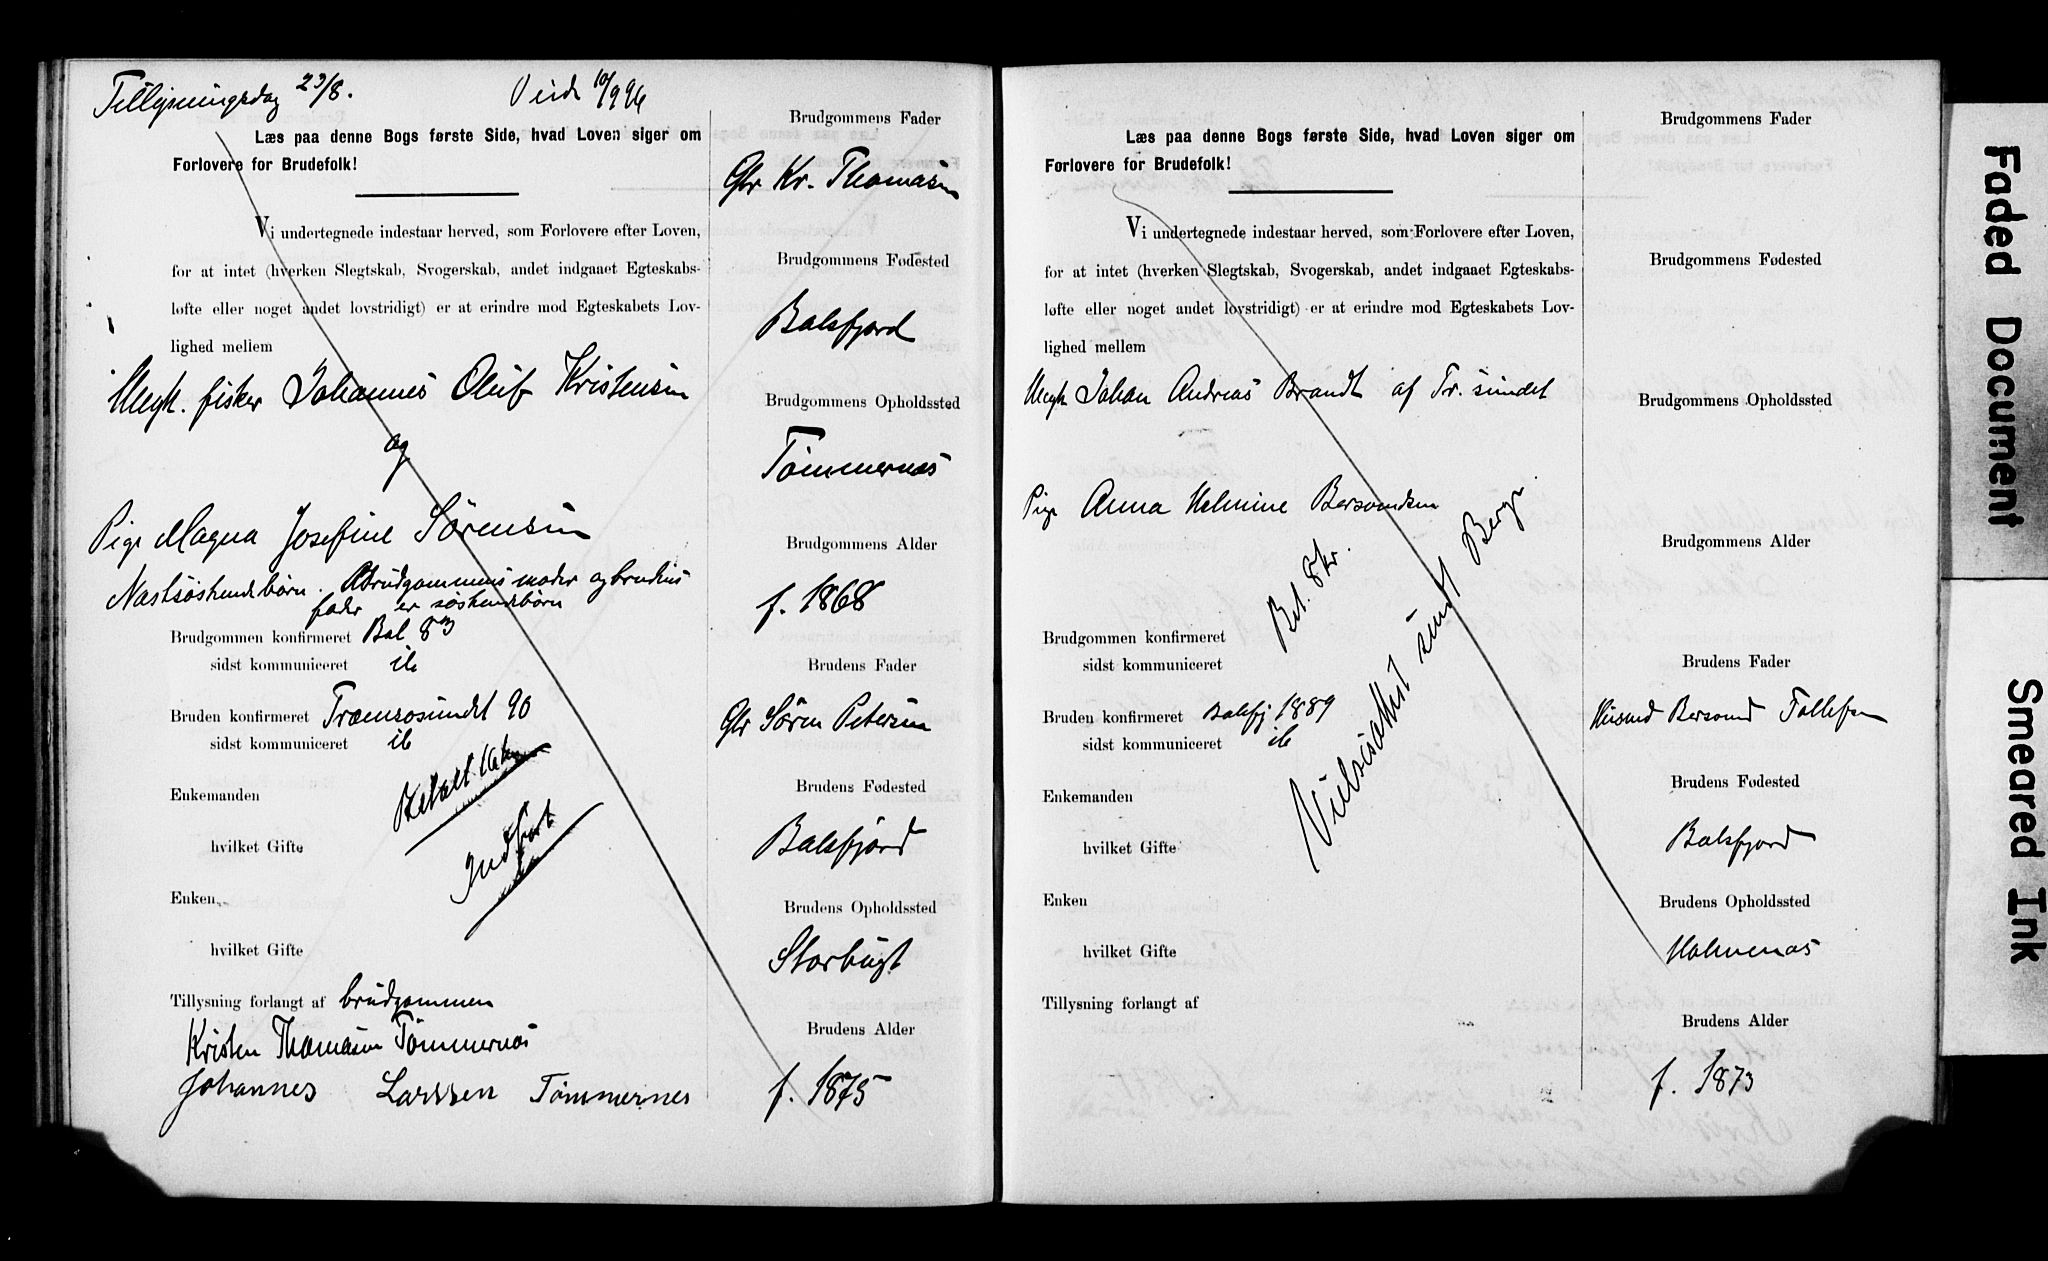 Tillysningsdag 23/8. Viede 10/9 96
Læs paa denne Bogs første Side, hvad Loven siger om
Forlovere for Brudefolk!
Vi undertegnede indestaar herved, som Forlovere efter Loven,
for at intet (hverken Slegtskab, Svogerskab, andet indgaaet Egteskabs-
løfte eller noget andet lovstridigt) er at erindre mod Egteskabets Lov-
lighed mellem
Ungk. fisker Johannes Oluf Kristensen
og
Pige Magna Josefine Sørensen
Næstsøskendebørn. Brudgommens moder og brudens
fader er søskendebørn
Brudgommen konfirmeret Bal 83
sidst kommuniceret ib
Bruden konfirmeret Tromsosundet 90
sidst kommuniceret ib
Betalt
Enkemanden
hvilket Gifte
Indført
Enken
hvilket Gifte
Tillysning forlangt af brudgommen
Kristen Thomasen Tømmernes
Johannes Larssen Tømmernes
Brudgommens Fader
Gbr Kr. Thomasen
Brudgommens Fødested
Balsfjord
Brudgommens Opholdssted
Tømmernæs
Brudgommens Alder
f. 1868
Brudens Fader
Gbr Sören Petersen
Brudens Fødested
Balsfjord
Brudens Opholdssted
Storbugt
Brudens Alder
f. 1875
Læs paa denne Bogs første Side, hvad Loven siger om
Forlovere for Brudefolk!
Vi undertegnede indestaar herved, som Forlovere efter Loven,
for at intet (hverken Slegtskab, Svogerskab, andet indgaaet Egteskabs-
løfte eller noget andet lovstridigt) er at erindre mod Egteskabets Lov-
lighed mellem
Ungk Johan Andreas Brandt af Tr. sundet
Pige Anna Helmine Bersvendsen
Bet. 8 kr.
Vielsesattest sendt Berge
Brudgommen konfirmeret
sidst kommuniceret
Bruden konfirmeret Balsfj 1889
sidst kommuniceret ib
Enkemanden
hvilket Gifte
Enken
hvilket Gifte
Tillysning forlangt af
Brudgommens Fader
Brudgommens Fødested
Brudgommens Opholdssted
Brudgommens Alder
Brudens Fader
Husmd Bersvend Tollefsen
Brudens Fødested
Balsfjord
Brudens Opholdssted
Holmenæs
Brudens Alder
f. 1873
Faded Document
Smeared Ink